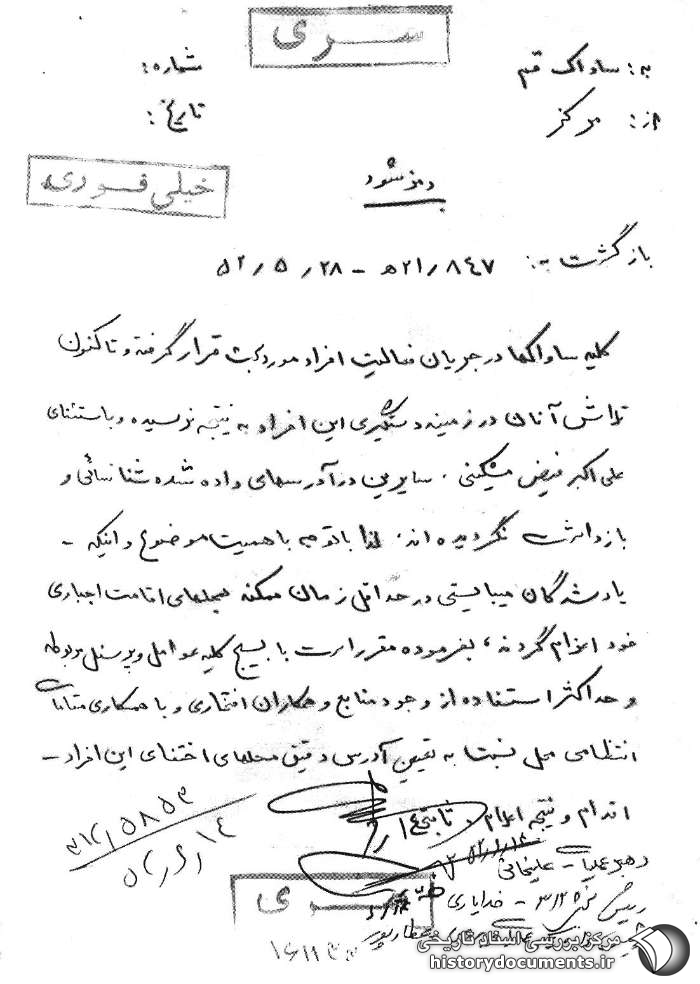 سری
به: ساواک قم
شماره:
از: مرکز
تاریخ:
رمز شود
خیلی فوری
بازگشت به: ۲۱/۸۴۷ه‍ - ۵۲/۵/۲۸
کلیه ساواکها در جریان فعالیت افراد مورد بحث قرار گرفته و تاکنون
تلاش آنان در زمینه دستگیری این افراد به نتیجه نرسیده و باستثنای
علی اکبر فیض مشکینی . سایرین در آدرسهای داده شده شناسائی و
بازداشت نگردیده اند. لذا با توجه باهمیت موضوع و اینکه -
یادشدگان میبایستی در حداقل زمان ممکنه بمحلهای اقامت اجباری
خود اعزام گردند، بفرموده مقرر است با بسیج کلیه عوامل و پرسنل مربوطه
و حداکثر استفاده از وجود منابع و همکاران افتخاری و با همکاری مقامات
انتظامی محل نسبت به تعیین آدرس دقیق محلهای اختفای این افراد -
اقدام و نتیجه اعلام . ثابتی
رهبر عملیات - علیخانی
رئیس بخش ۳۱۲ - خدایاری
عطارپور
سری
مرکز بررسی اسناد تاریخی
historydocuments.ir